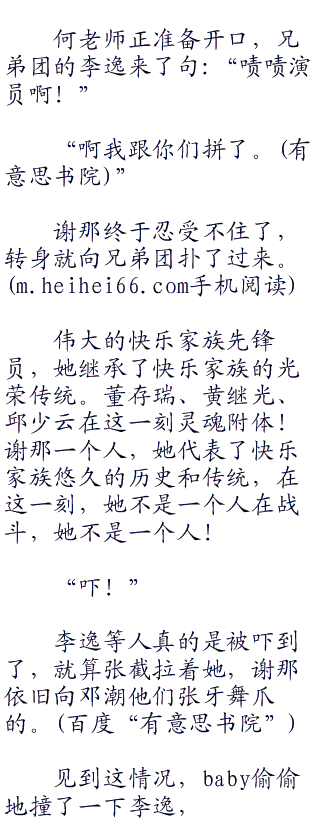 何老师正准备开口，兄
弟团的李逸来了句：“啧啧演
员啊！”
“啊我跟你们拼了。(有
意思书院)”
谢那终于忍受不住了，
转身就向兄弟团扑了过来。
(m.heihei66.com手机阅读)
伟大的快乐家族先锋
员，她继承了快乐家族的光
荣传统。董存瑞、黄继光、
邱少云在这一刻灵魂附体！
谢那一个人，她代表了快乐
家族悠久的历史和传统，在
这一刻，她不是一个人在战
斗，她不是一个人！
“吓！”
李逸等人真的是被吓到
了，就算张截拉着她，谢那
依旧向邓潮他们张牙舞爪
的。(百度“有意思书院”)
见到这情况，baby偷偷
地撞了一下李逸，